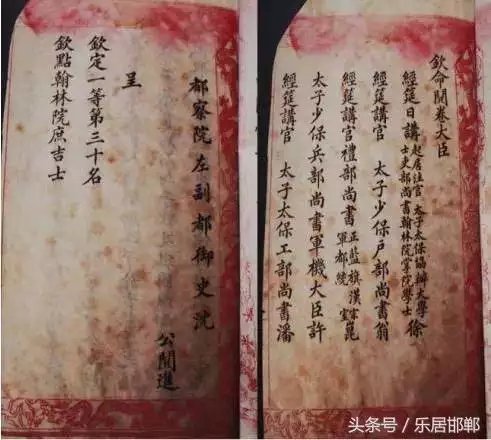 欽命閱卷大臣
經筵日講起居注官 太子太保協辦大學士吏部尚書翰林院掌院學士 徐
經筵講官 太子少保戶部尚書翁
經筵講官禮部尚書正藍旗漢軍都統宗室崑
太子少保兵部尚書軍機大臣許
經筵講官 太子太保工部尚書潘
都察院左副都御史沈
公閱選
呈
欽定一等第三十名
欽點翰林院庶吉士
头条号 / 乐居邯郸